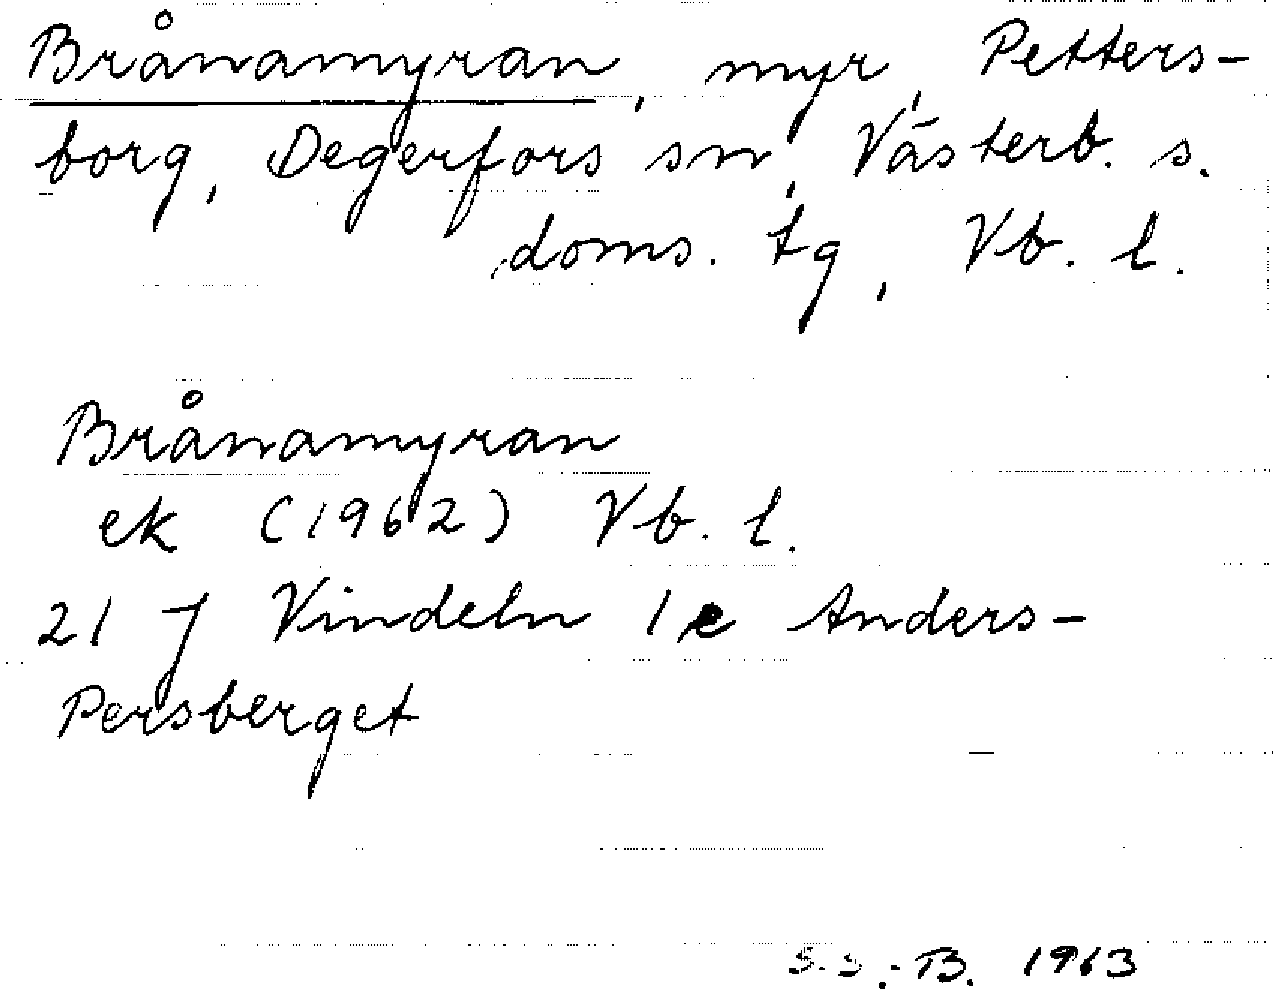 Brånamyran, myr, Petters-
borg, Degerfors sn, Västerb. s.
doms. tg, Vb. l.
Brånamyran
ek (1962) Vb. l.
21 J Vindeln 1e Anders-
Persberget
S.S.-B. 1963